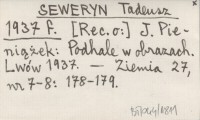 SEWERYN Tadeusz
1937 f. [Rec. o:] J. Pie-
niążek: Podhale w obrazach.
Lwów 1937. — Ziemia 27,
nr 7-8: 178-179.